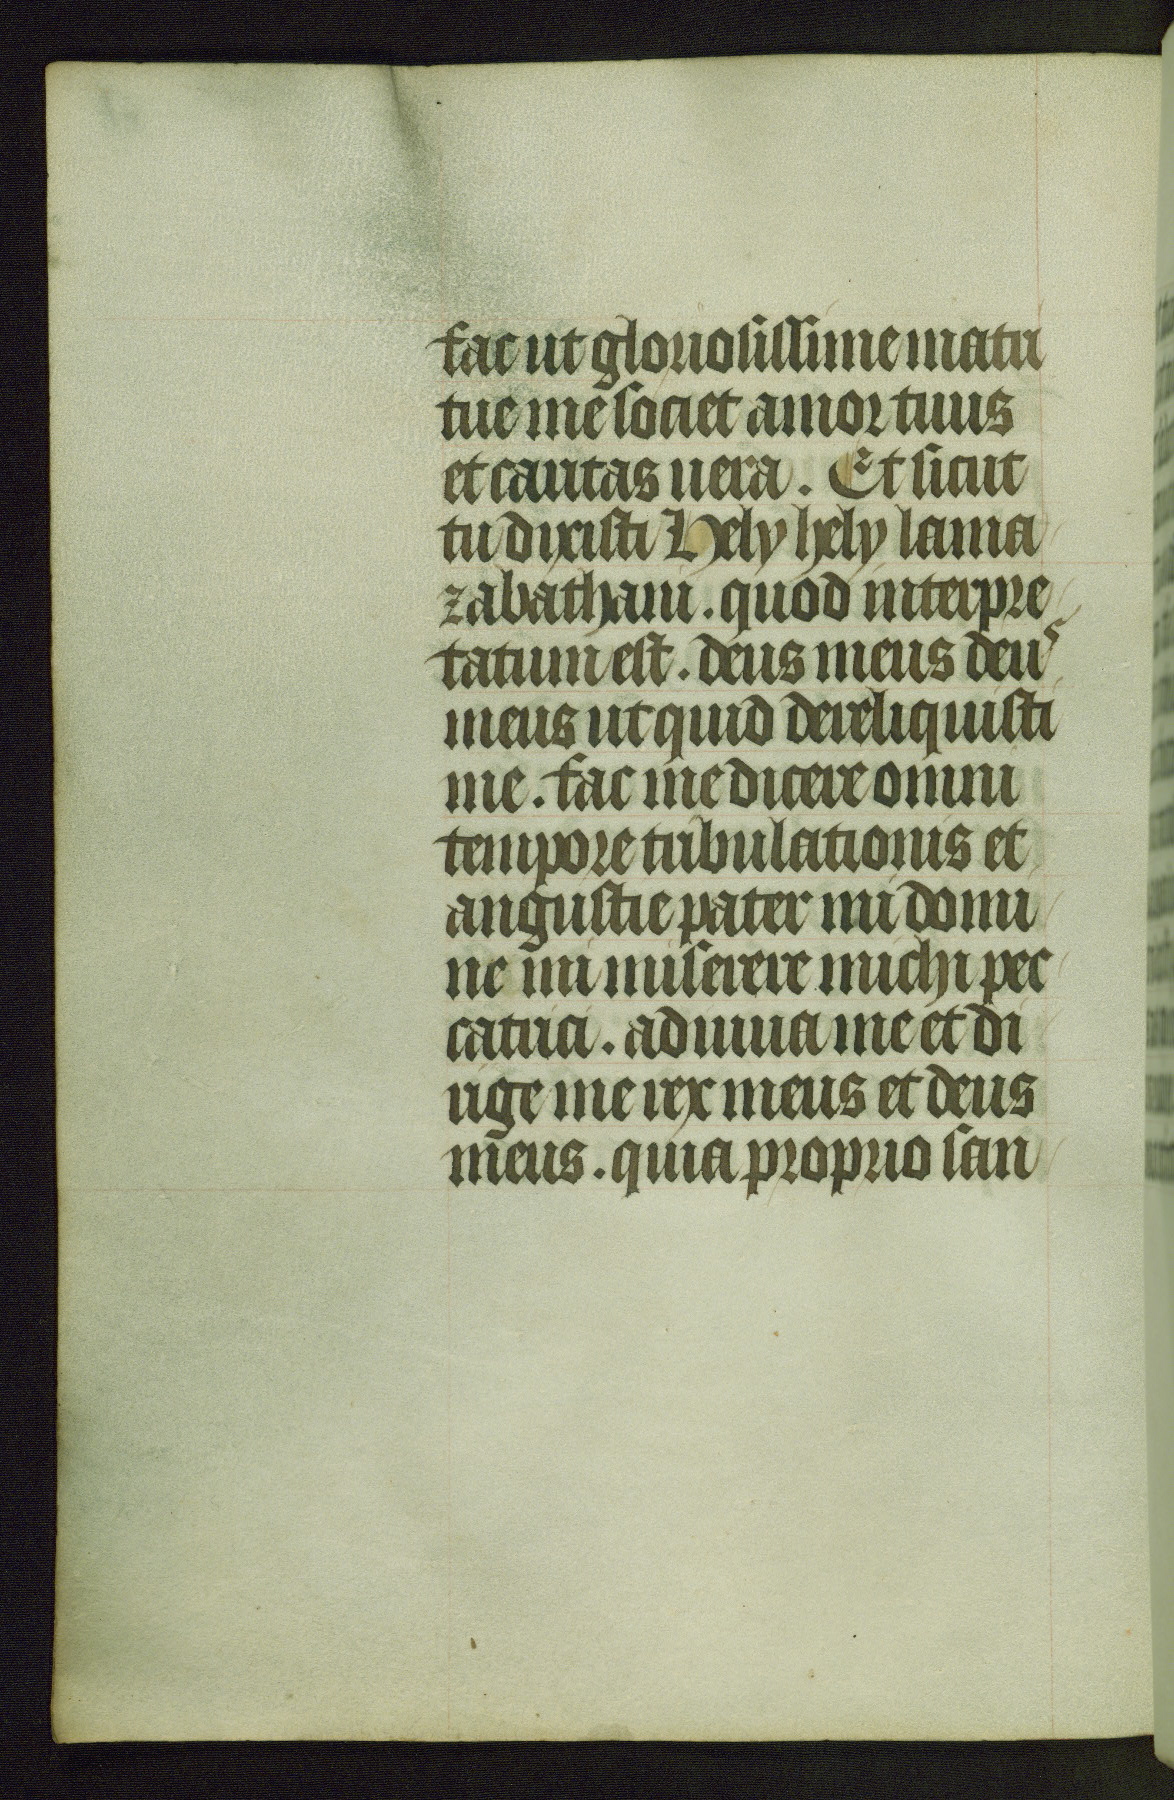 fac ut gloriosissime matri
tue me societ amor tuus
et caritas uera. Et sicut
tu dixisti Hely hely lama
zabathani. quod interpre
tatum est. deus meus deus
meus ut quid dereliquisti
me. fac me dicere omni
tempore tribulationis et
angustie pater mi domi
ne mi miserere michi pec
catrici. adiuua me et di
rige me rex meus et deus
meus. quia proprio san